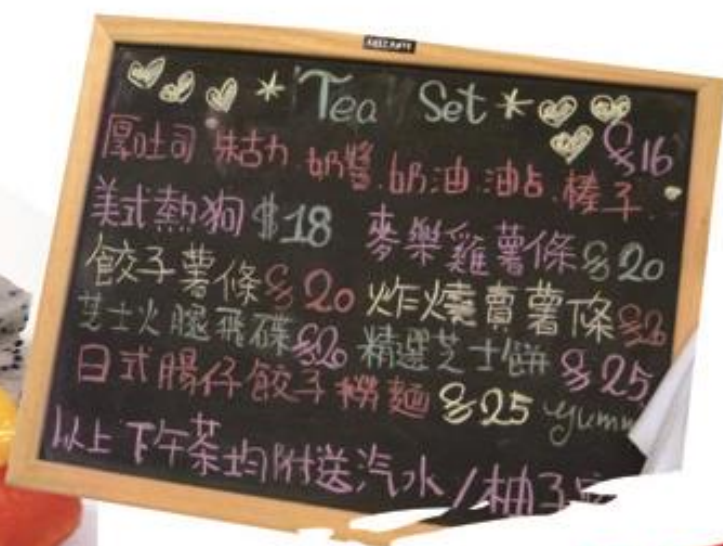 Tea Set
$16
厚吐司 朱古力.奶醬.奶油.油占.榛子.
美式熱狗 $18 麥樂雞薯條 $20
餃子薯條 $20 炸燒賣薯條
芝士火腿飛碟 精選芝士餅 $25
日式腸仔餃子撈麵 $25
以上下午茶均附送汽水/柚子